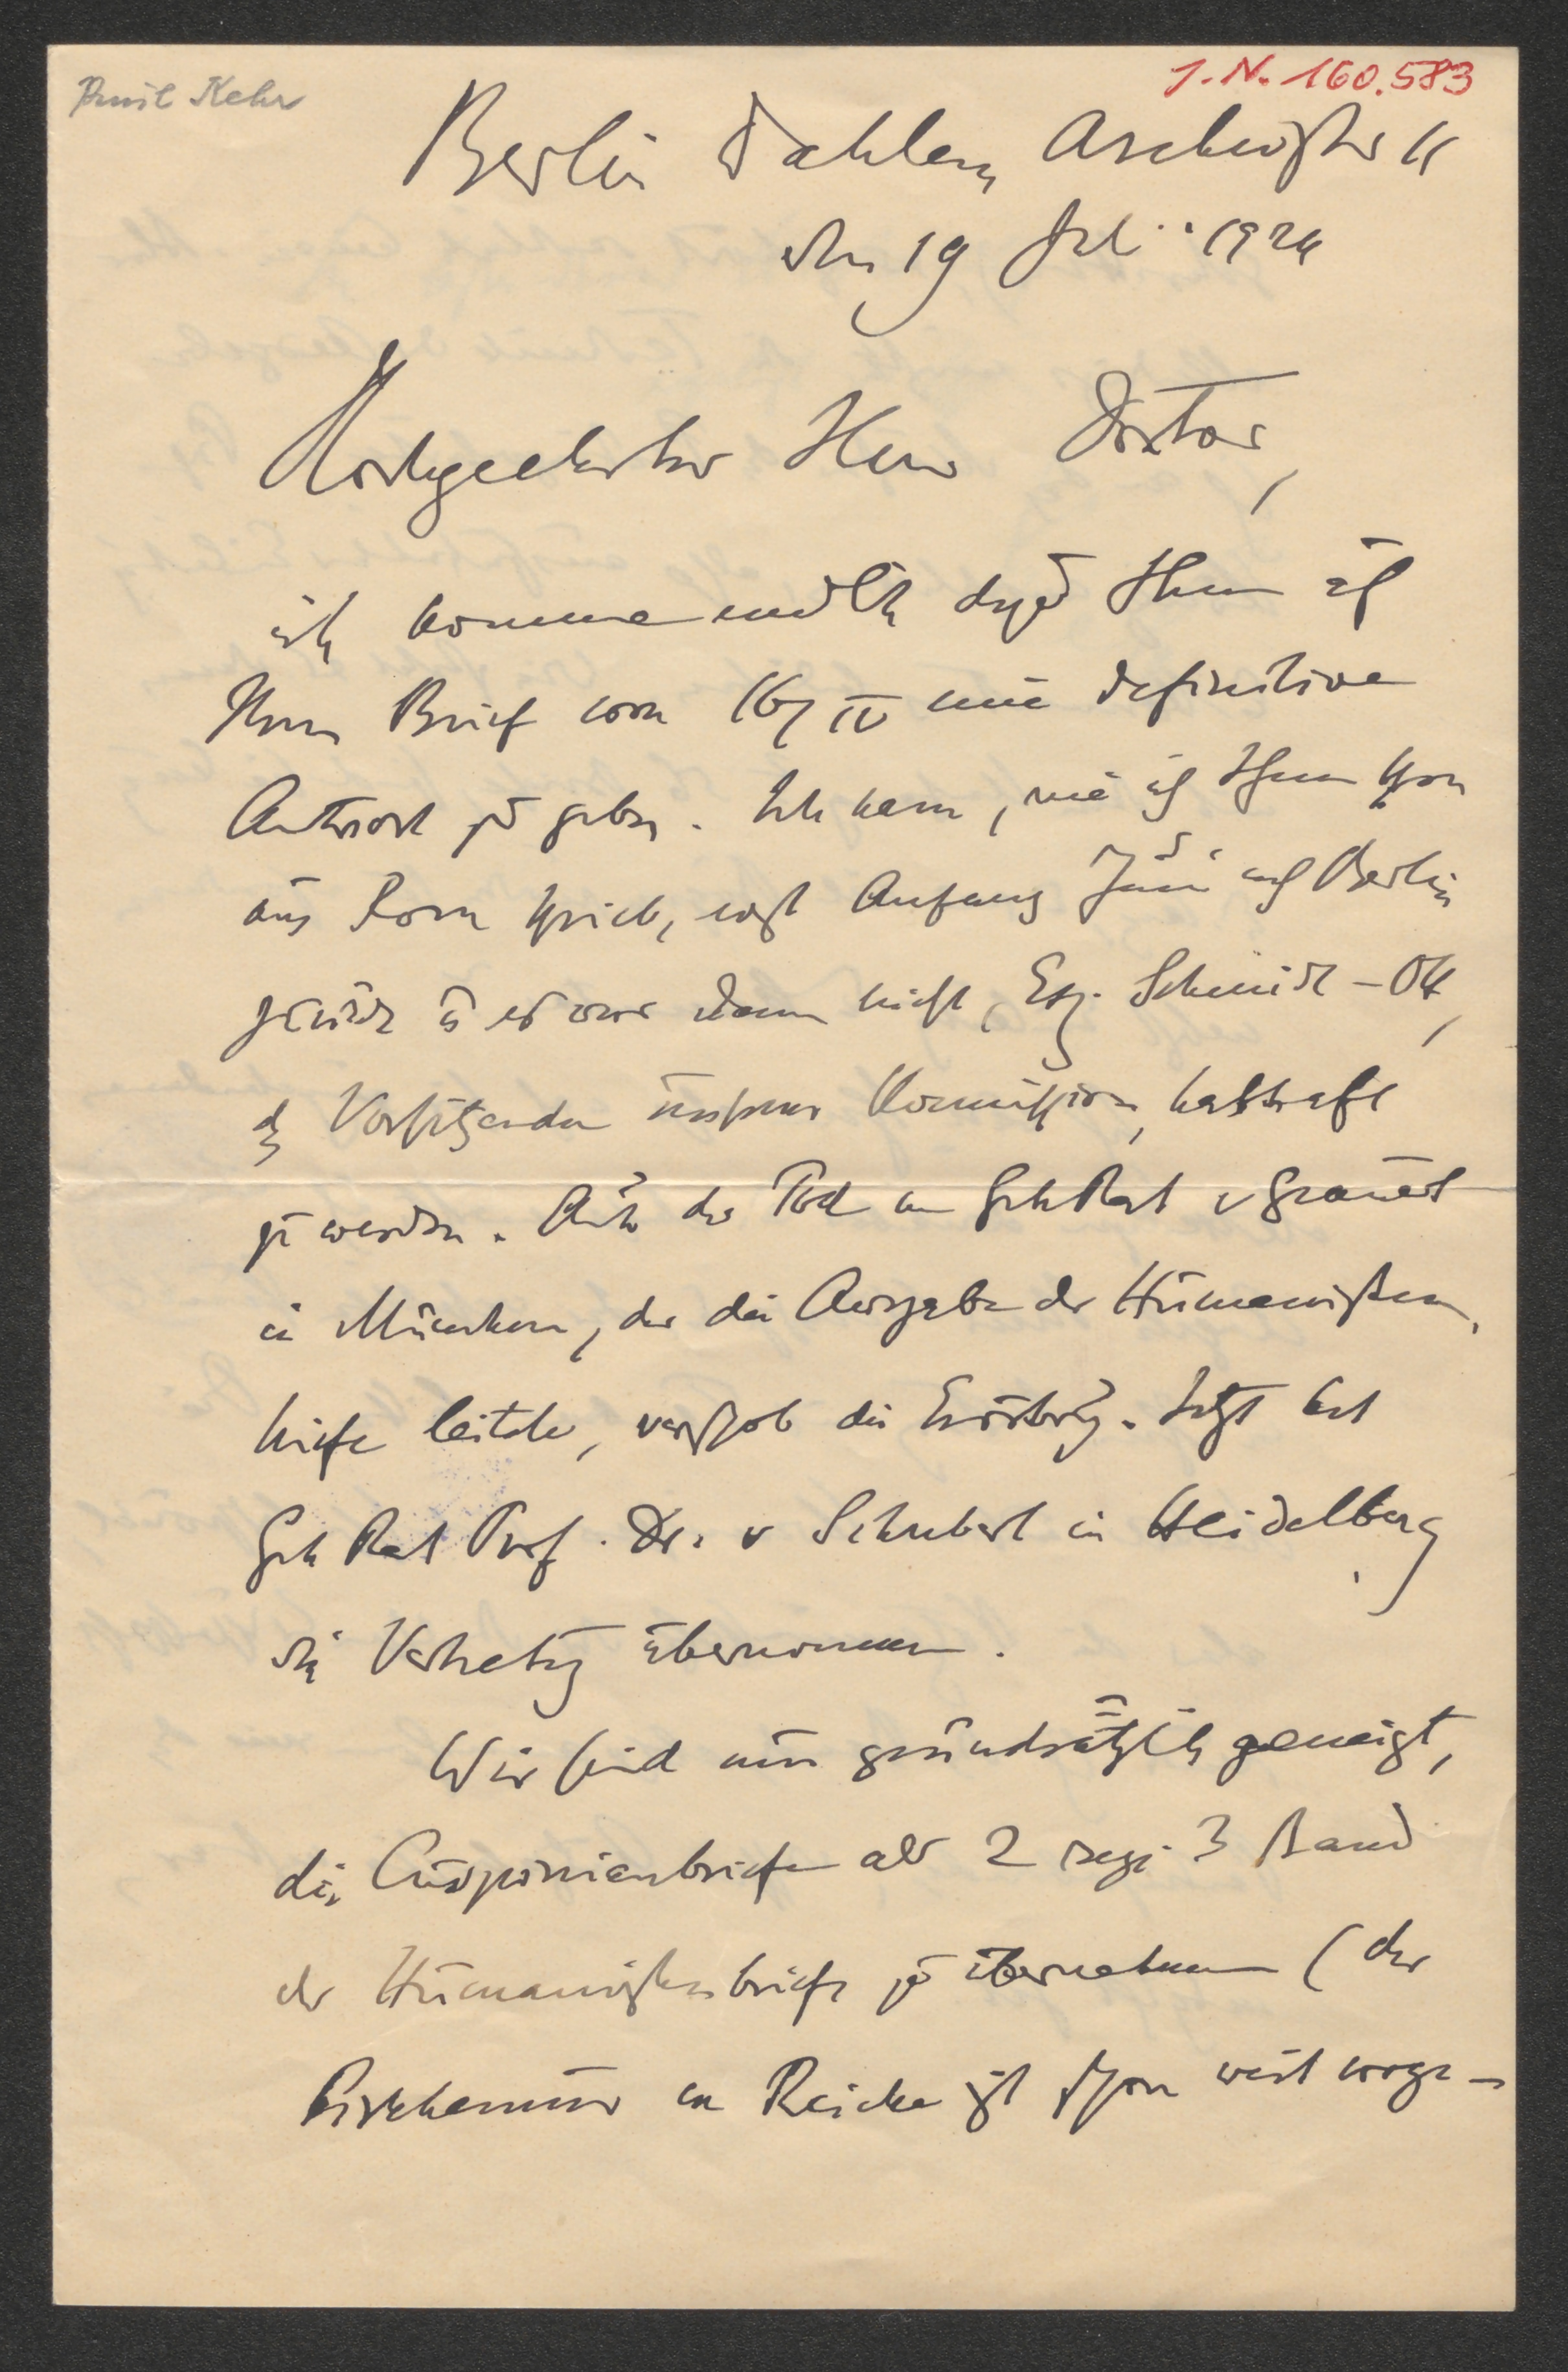 Paul Kehr
I.N. 160.583
Berlin Dahlem Archivstr 11
den 19 Juli 1924
Hochgeehrter Herr Doktor,
ich komme endlich dazu Ihnen auf
Ihren Brief vom 16/IV eine definitive
Antwort zu geben. Ich kam, wie ich Ihnen schon
aus Rom schrieb, erst Anfang Juni nach Berlin
zurück u es war dann nicht, Exz. Schmidt-Ott,
den Vorsitzenden unserer Kommission, habhaft
zu werden. Auch der Tod von GehRat v Grauert
in München, der die Ausgabe der Humanisten,
briefe leitete, verschob die Erörterung. Jetzt hat
Geh Rat Prof. Dr. v Schubert in Heidelberg
die Vertretung übernommen.
Wir sind nun grundsätzlich geneigt,
die Cuspinianbriefe als 2 resp. 3 Band
der Humanistenbriefe zu übernehmen (der
Pirkheimer von Reicke ist schon weit vorge-